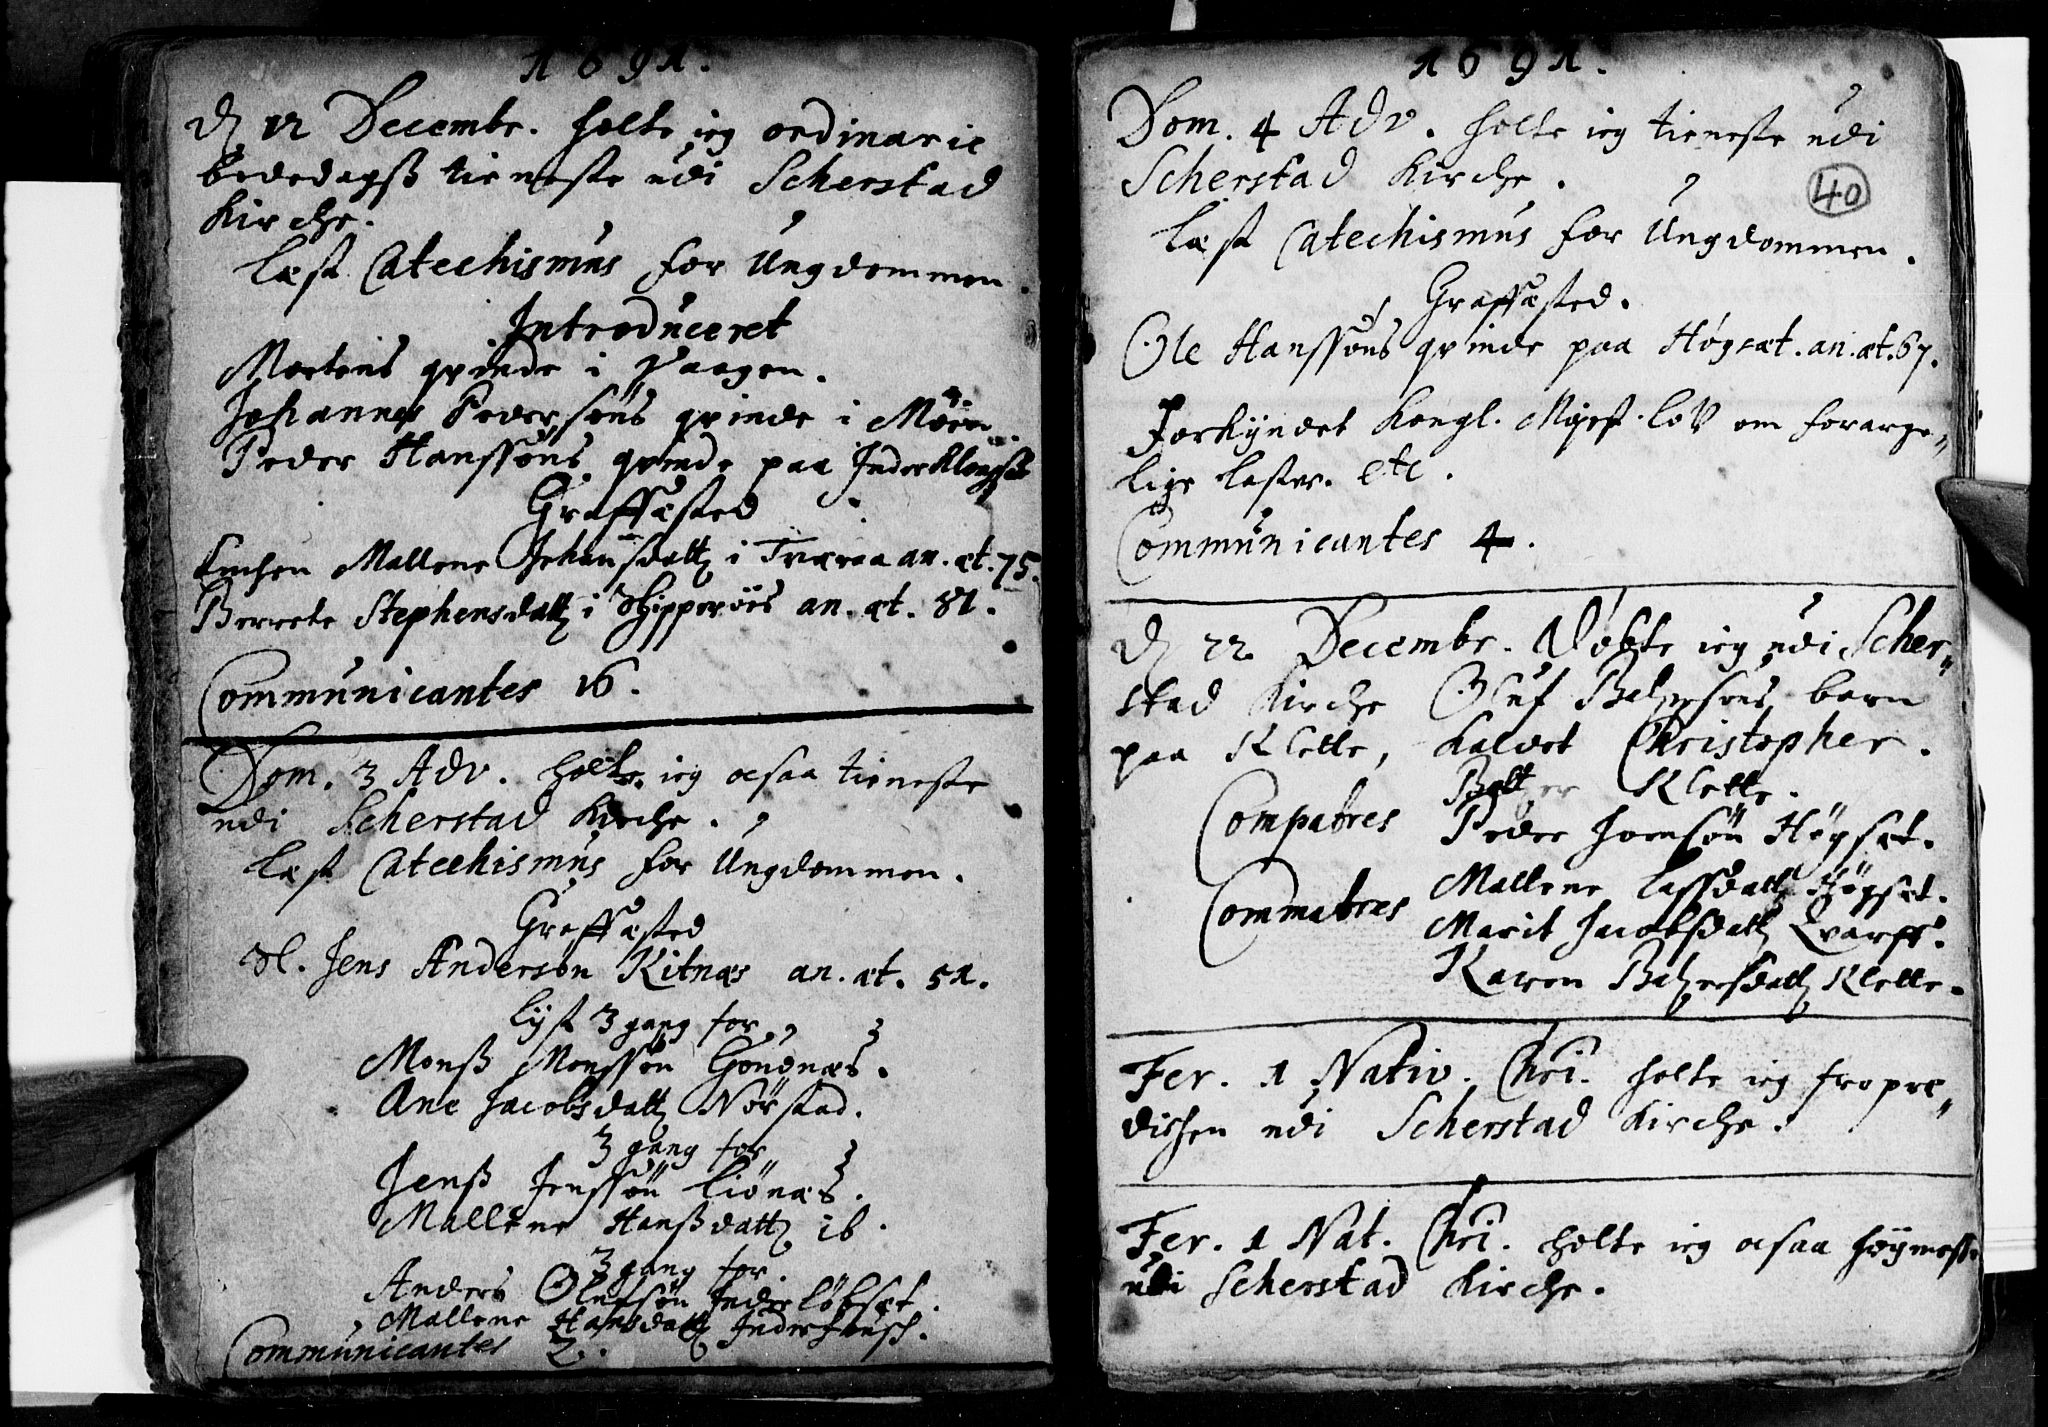 1691.
D 12 Decembr. holte ieg ordinarie
bededagsß tieneste udi Scherstad
Kirche.
Læst Catechismus for Ungdommen.
Introduceret
Mortens qvinde i Vaagen.
Johannes Pedersøns qvinde i Møen.
Peder Hanssøns qvinde paa Inder
Graffæsted
Enchen Mallene Johansdatt i Tværaa an. æt. 75.
Berrete Stephensdatt i Schipperøes an. æt. 81.
Communicantes 16.
Dom. 3 Adv. holte ieg ocsaa tieneste
udi Scherstad Kirche.
Læst Catechismus for Ungdommen.
Graffæsted
Sl. Jens Anderson Kitnæs an. æt. 51.
Lyst 3 gang for
Monß Monssøn Godnæs.
Ane Jacobsdatt Nørstad.
3 gang for
Jenß Jenssøn Liønæs.
Mallene Hanßdatt ib.
3 gang for
Anders Olufsøn Inder Løbsæt.
Mallene Hansdatt
Communicantes 2.
1691.
40
Dom. 4 Adv. holte ieg tieneste udi
Scherstad Kirche.
Læst Catechismus for Ungdommen.
Graffæsted.
Ole Hanssøns qvinde paa Høgsæt. an. æt. 67.
Forkyndet Kongl. Majest. lov om forarge„
lige laster. etc.
Communicantes 4.
D 22 Decembr. Døbte ieg udi Scher„
stad Kirche Oluf Baltzersøns barn
paa Klette, kaldet Christopher.
Compatres Baltzer Klette.
Peder Joensøn Høgsæt.
Commatres Mallene Lassdatt Høgsæt.
Marit Jacobsdatt Qvarff.
Karen Baltzersdatt Klette.
Fer. 1 Nativ. Chri. holte ieg fropre„
dichen udi Scherstad Kirche.
Fer. 1 Nat. Chri. holte ieg ocsaa høymesse
udi Scherstad Kirche.